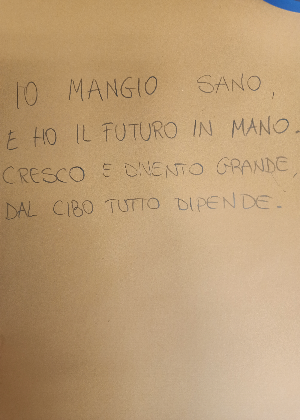 IO MANGIO SANO,
E HO IL FUTURO IN MANO.
CRESCO E DIVENTO GRANDE,
DAL CIBO TUTTO DIPENDE.